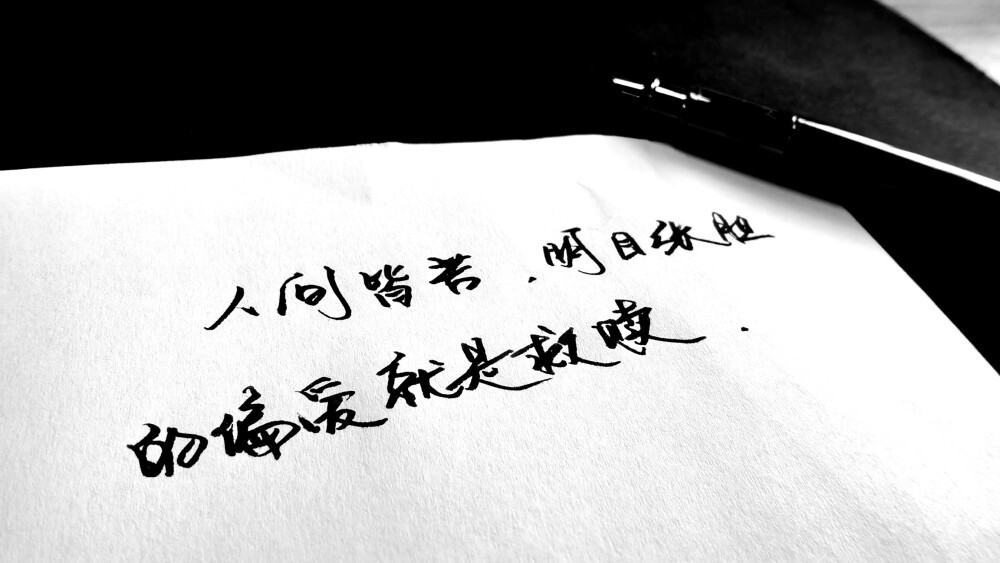 人间皆苦,明目张胆
的偏爱就是救赎.